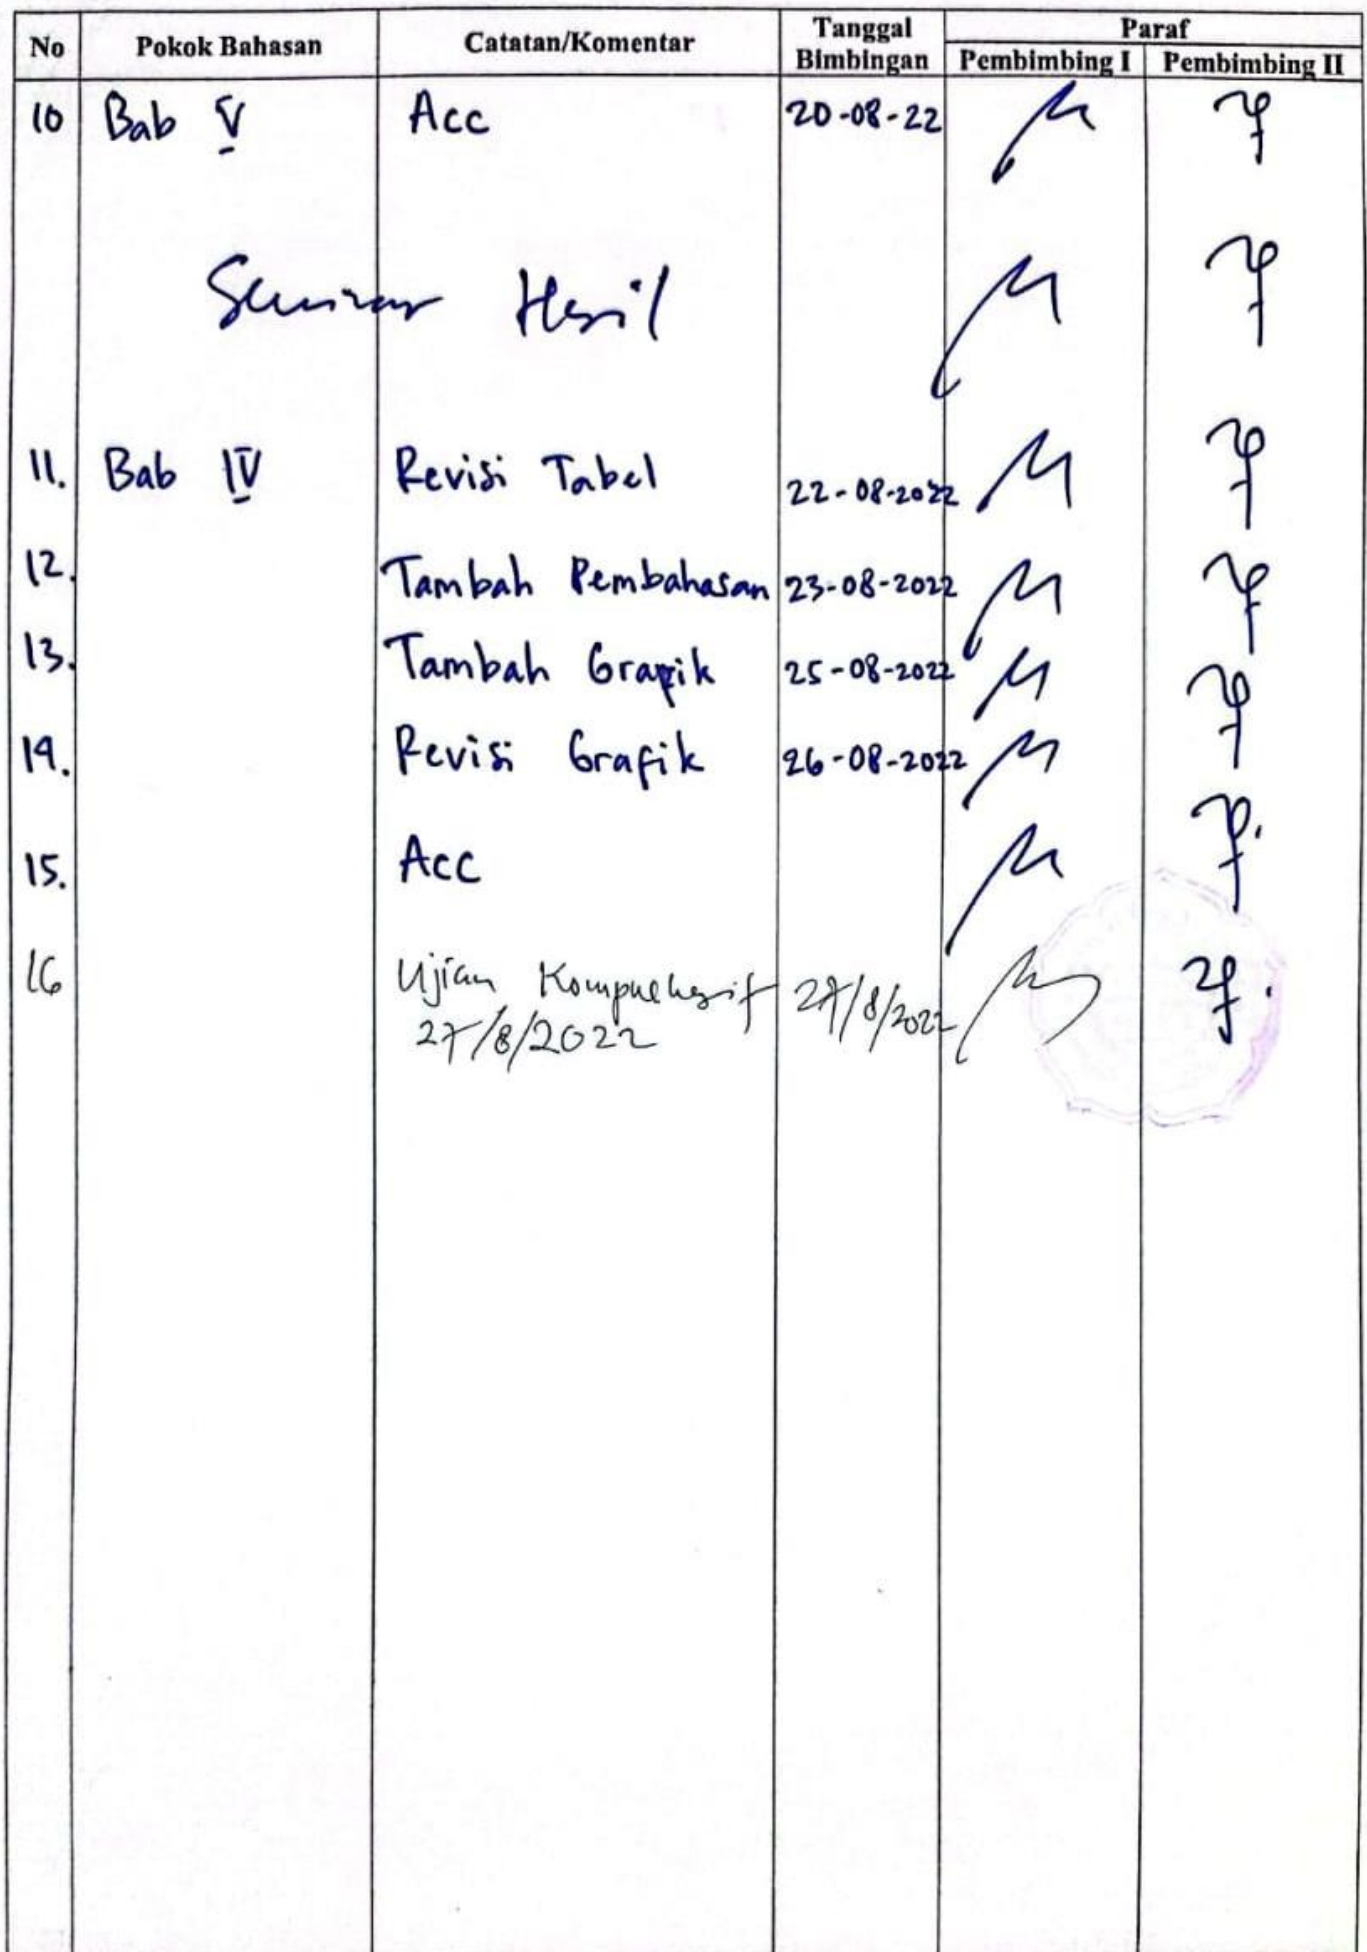 No Pokok Bahasan Catatan/Komentar Tanggal Bimbingan Paraf
Pembimbing I Pembimbing II
10 Bab V Acc 20-08-22
Seminar Hasil
11. Bab IV Revisi Tabel 22-08-2022
12. Tambah Pembahasan 23-08-2022
13. Tambah Grapik 25-08-2022
14. Revisi Grafik 26-08-2022
15. Acc
16 Ujian Komprehesif 27/8/2022
27/8/2022